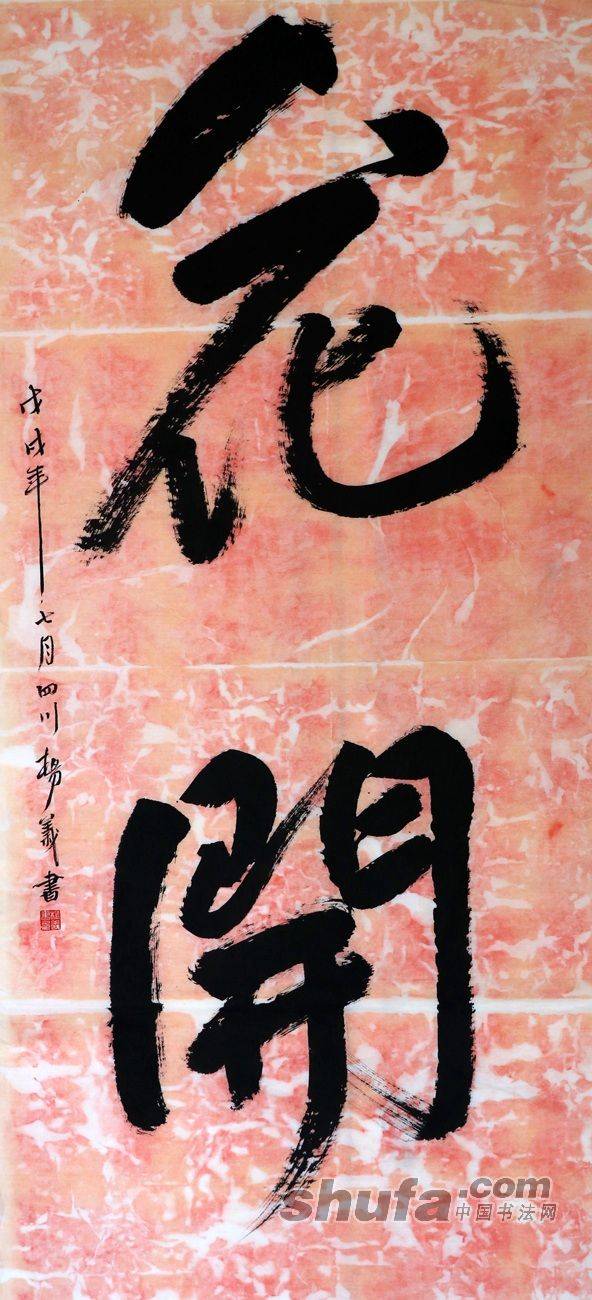 花開
戊戌年七月四川楊義書
shufa.com
中国书法网